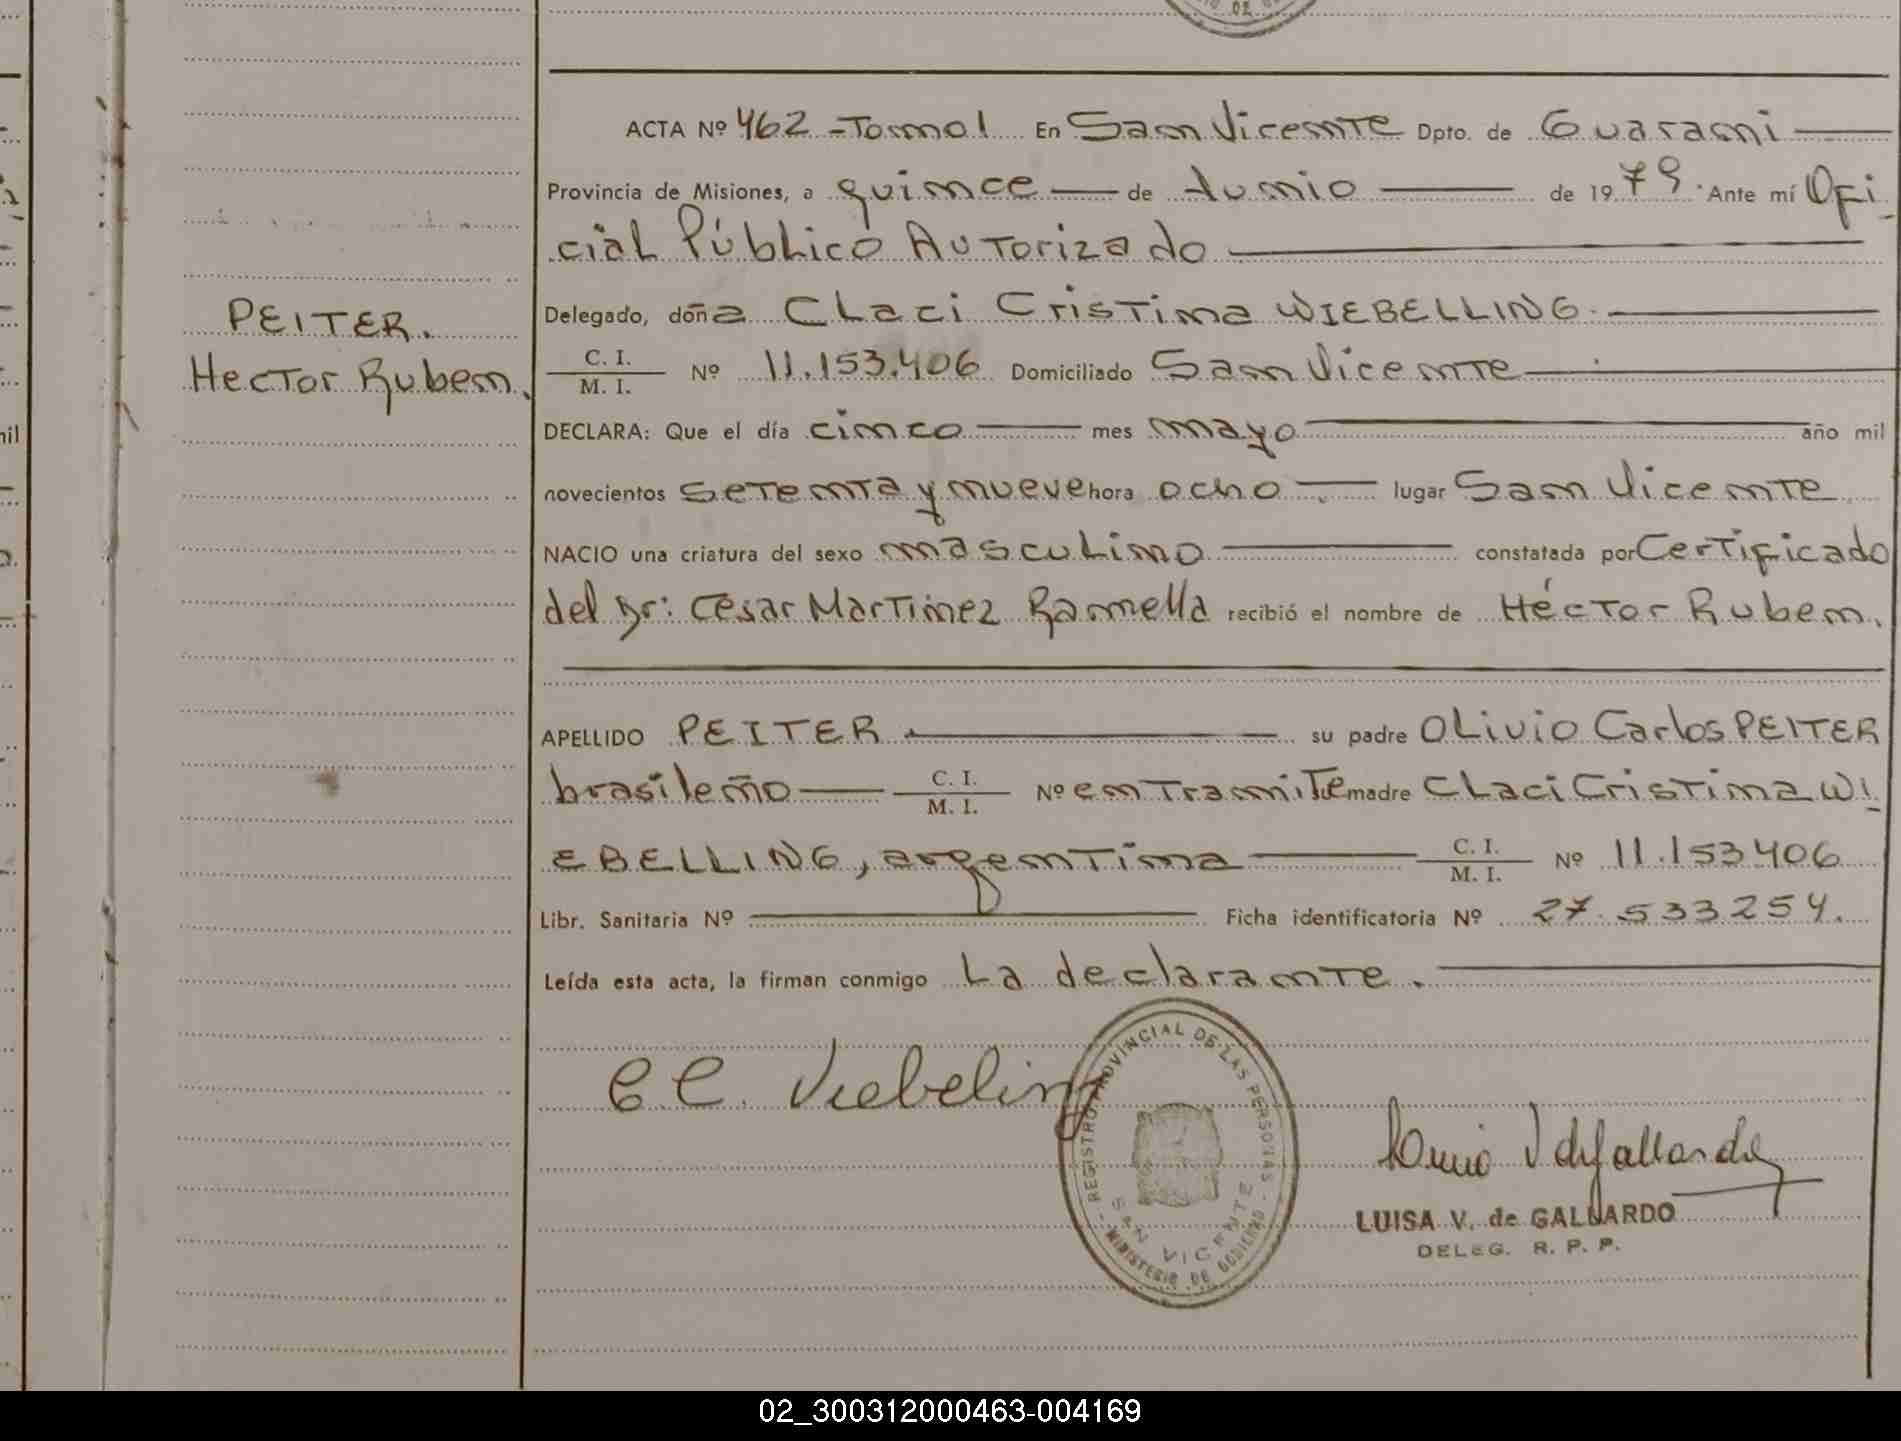 ACTA Nº 462 - Tomo 1 En San Vicente Dpto. de Guarani
Provincia de Misiones, a quince de Junio de 1979. Ante mí Ofi-
cial Público Autorizado
PEITER.
Hector Ruben.
Delegado, doña Claci Cristina WIEBELLING.
C. I.
M. I.
Nº 11.153.406 Domiciliado San Vicente
DECLARA: Que el día cinco mes mayo año mil
novecientos setenta y nueve hora ocho lugar San Vicente
NACIO una criatura del sexo masculino constatada por Certificado
del Dr: César Martinez Ramella recibió el nombre de Héctor Ruben.
APELLIDO PEITER su padre OLivio Carlos PEITER
brasileño C. I.
M. I.
Nº en Tramite madre Claci Cristina WI
EBELLING, argentina C. I.
M. I.
Nº 11.153406
Libr. Sanitaria Nº Ficha identificatoria Nº 27.533254.
Leída esta acta, la firman conmigo La declarante.
C C. Viebeling
REGISTRO PROVINCIAL DE LAS PERSONAS
SAN VICENTE
MINISTERIO DE GOBIERNO
LUISA V. de GALLARDO
DELEG. R. P. P.
02_300312000463-004169